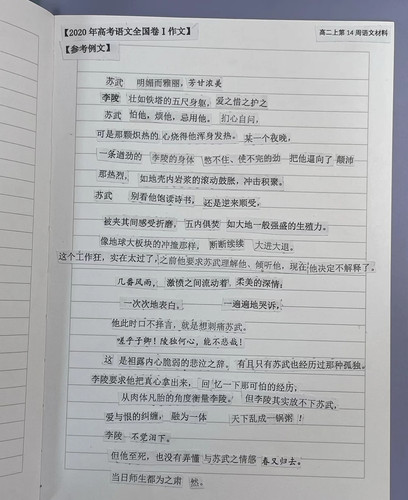 【2020 年高考语文全国卷 I 作文】
高二上第 14 周语文材料
【参考例文】
苏武 明媚而雅丽，芳甘浓美
李陵 壮如铁塔的五尺身躯，爱之惜之护之
苏武 怕他，烦他，忌用他。扪心自问，
可是那颗炽热的心烧得他浑身发热。某一个夜晚，
一条遒劲的 李陵的身体 憋不住、使不完的劲 把他逼向了 颠沛
那热烈，如地壳内岩浆的滚动鼓胀，冲击积聚。
苏武 别看他饱读诗书，还是逆来顺受，
被夹其间感受折磨，五内俱焚 如大地一般强盛的生殖力。
像地球大板块的冲撞那样，断断续续 大进大退。
这个工作狂，实在太过了，之前他要求苏武理解他、倾听他，现在他决定不解释了。
几番风雨，激愤之间流动着 柔美的深情：
一次次地表白。 一遍遍地哭诉，
他此时口不择言，就是想刺痛苏武。
嗟乎子卿！陵独何心，能不悲哉！
这 是袒露内心脆弱的悲泣之辞。有且只有苏武也经历过那种孤独。
李陵要求他把真心拿出来，回 忆一下那可怕的经历，
从肉体凡胎的角度衡量李陵。但李陵其实放不下苏武，
爱与恨的纠缠，融为一体 天下乱成一锅粥！
李陵 不觉泪下。
但他至死，也没有弄懂 与苏武之情感 春又归去。
当日师生都为之肃 然。